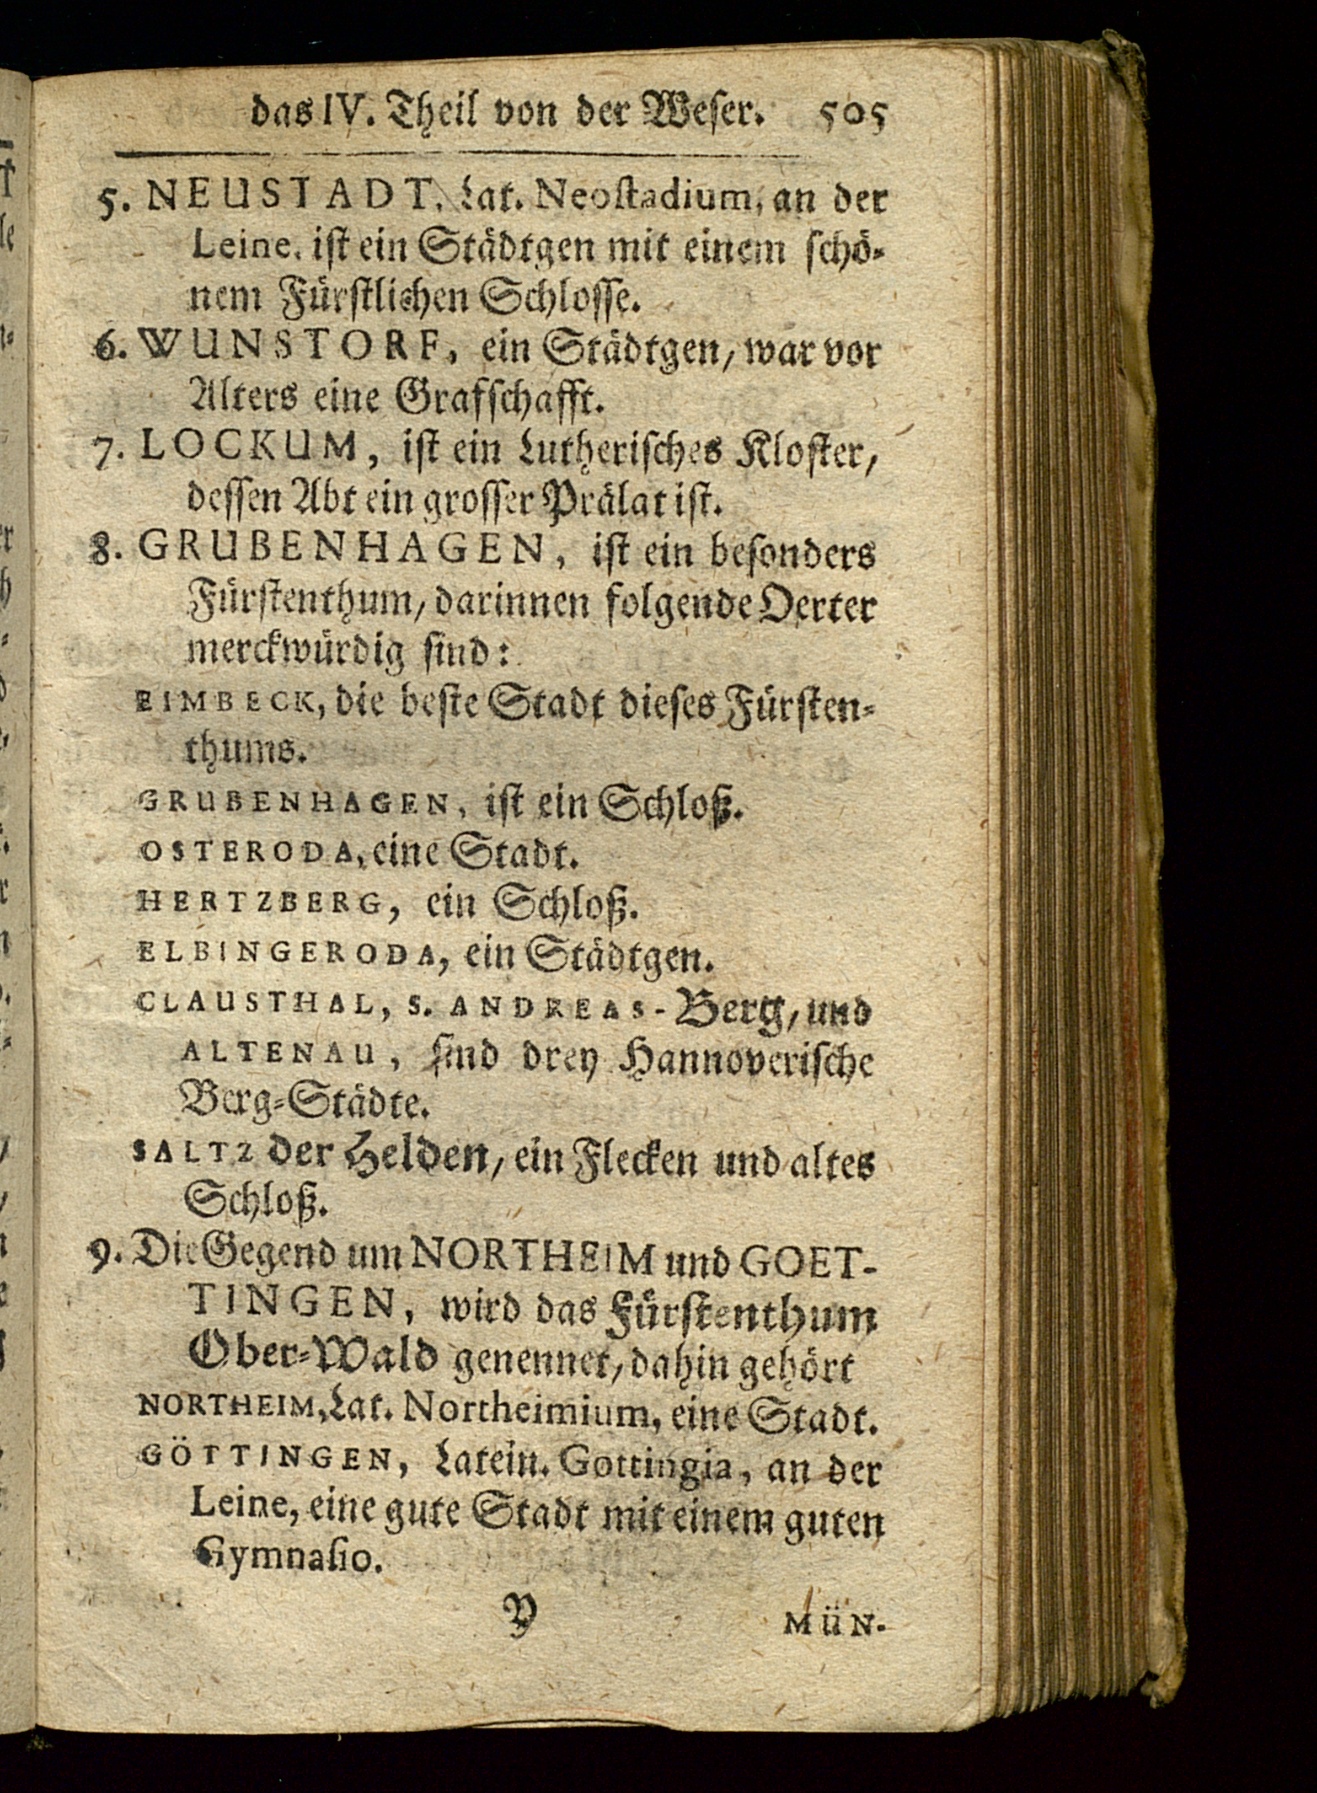 das IV. Theil von der Weser. 505
5. NEUSTADT, Lat. Neoſtadium, an der
Leine, iſt ein Städtgen mit einem ſchö-
nem Fürſtlichen Schloſſe.
6. WUNSTORF, ein Städtgen, war vor
Alters eine Grafſchafft.
7. LOCKUM, iſt ein Lutheriſches Kloſter,
deſſen Abt ein groſſer Prälat iſt.
8. GRUBENHAGEN, iſt ein beſonders
Fürſtenthum, darinnen folgende Oerter
merckwürdig ſind:
EIMBECK, die beſte Stadt dieſes Fürſten-
thums.
GRUBENHAGEN, iſt ein Schloß.
OSTERODA, eine Stadt.
HERTZBERG, ein Schloß.
ELBINGERODA, ein Städtgen.
CLAUSTHAL, S. ANDREAS-Berg, und
ALTENAU, ſind drey Hannoveriſche
Berg-Städte.
SALTZ der Helden, ein Flecken und altes
Schloß.
9. Die Gegend um NORTHEIM und GOET-
TINGEN, wird das Fürſtenthum
Ober-Wald genennet, dahin gehört
NORTHEIM, Lat. Northeimium, eine Stadt.
GÖTTINGEN, Latein. Gottingia, an der
Leine, eine gute Stadt mit einem guten
Gymnaſio.
Y MÜN-